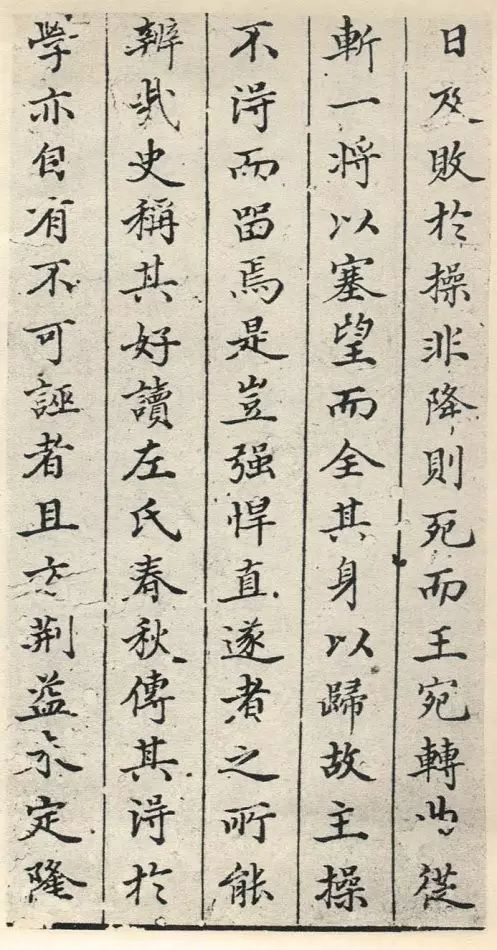 日及敗於操非降則死而王宛轉從
斬一將以塞望而全其身以歸故主操
不得而留焉是豈强悍直遂者之所能
辨哉史稱其好讀左氏春秋傳其得於
學亦自有不可誣者且方荊益未定隆